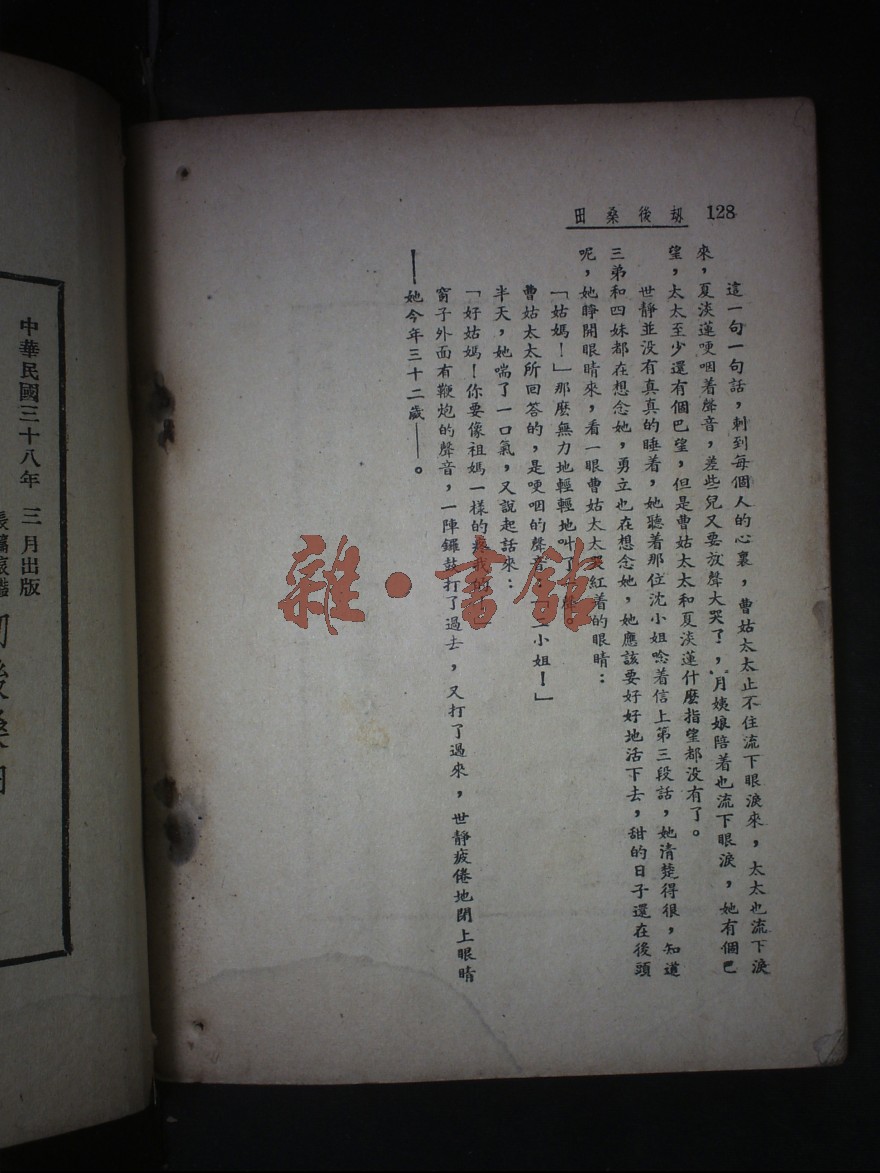 128 劫後桑田
這一句一句話，刺到每個人的心裏，曹姑太太止不住流下眼淚來，太太也流下淚
來，夏淡蓮哽咽着聲音，差些兒又要放聲大哭了，月姨娘陪着也流下眼淚，她有個巴
望，太太至少還有個巴望，但是曹姑太太和夏淡蓮什麼指望都没有了。
世靜並没有真真的睡着，她聽着那位沈小姐唸着信上第三段話，她清楚得很，知道
三弟和四妹都在想念她，勇立也在想念她，她應該要好好地活下去，甜的日子還在後頭
呢，她睁開眼睛來，看一眼曹姑太太哭紅着的眼睛：
「姑媽！」那麽無力地輕輕地叫了一聲。
曹姑太太所回答的，是哽咽的聲音：「二小姐！」
半天，她喘了一口氣，又說起話來：
「好姑媽！你要像祖媽一樣的疼我的！」
窗子外面有鞭炮的聲音，一陣鑼鼓打了過去，又打了過來，世靜疲倦地閉上眼睛
——她今年三十二歲——。
雜·書館
中華民國三十八年 三月出版